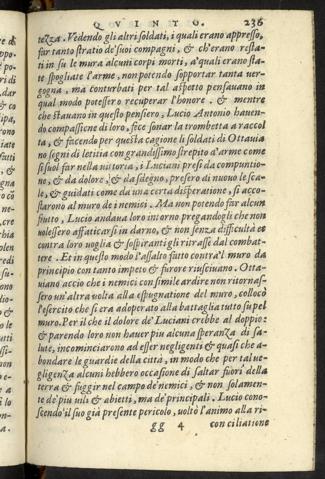 QVINTO. 236
tezza. Vedendo gli altri soldati, i quali erano appresso,
far tanto stratio de'suoi compagni, & ch'erano resta-
ti in su le mura alcuni corpi morti, a'quali erano sta-
te spogliate l'arme, non potendo sopportar tanta ver-
gogna, ma conturbati per tal aspetto pensauano in
qual modo potessero recuperar l'honore. & mentre
che stauano in questo pensiero, Lucio Antonio hauen-
do compassione di loro, fece sonar la trombetta a raccol
ta, & facendo per questa cagione li soldati di Ottauia
no segni di letitia con grandissimo strepito d'arme come
si suol far nella vittoria, i Luciani presi da compuntio-
ne, & da dolore, & da sdegno, presero di nuouo le sca-
le, & guidati come da una certa disperatione, si acco-
starono al muro de i nemici. Ma non potendo far alcun
frutto, Lucio andaua loro intorno pregandogli che non
volessero affaticarsi in darno, & non senza difficultà et
contra loro uoglia & sospiranti gli ritrasse dal combat-
tere. Et in questo modo l'assalto fatto contra'l muro da
principio con tanto impeto & furore riusciuano. Otta-
uiano accio che i nemici con simile ardire non ritornas-
sero un'altra uolta alla espugnatione del muro, collocò
l'esercito che si era adoperato alla battaglia tutto su pel
muro. Per il che il dolore de' Luciani crebbe al doppio:
& parendo loro non hauer piu alcuna speranza di sa-
lute, incominciarono ad esser negligenti & quasi che a-
bondare le guardie della città, in modo che per tal ne-
gligenza alcuni hebbero occasione di saltar fuori della
terra & fuggir nel campo de'nemici, & non solamen-
te de'piu uili & abietti, ma de'principali. Lucio cono-
scendo'il suo già presente pericolo, voltò l'animo alla ri-
gg 4 conciliatione